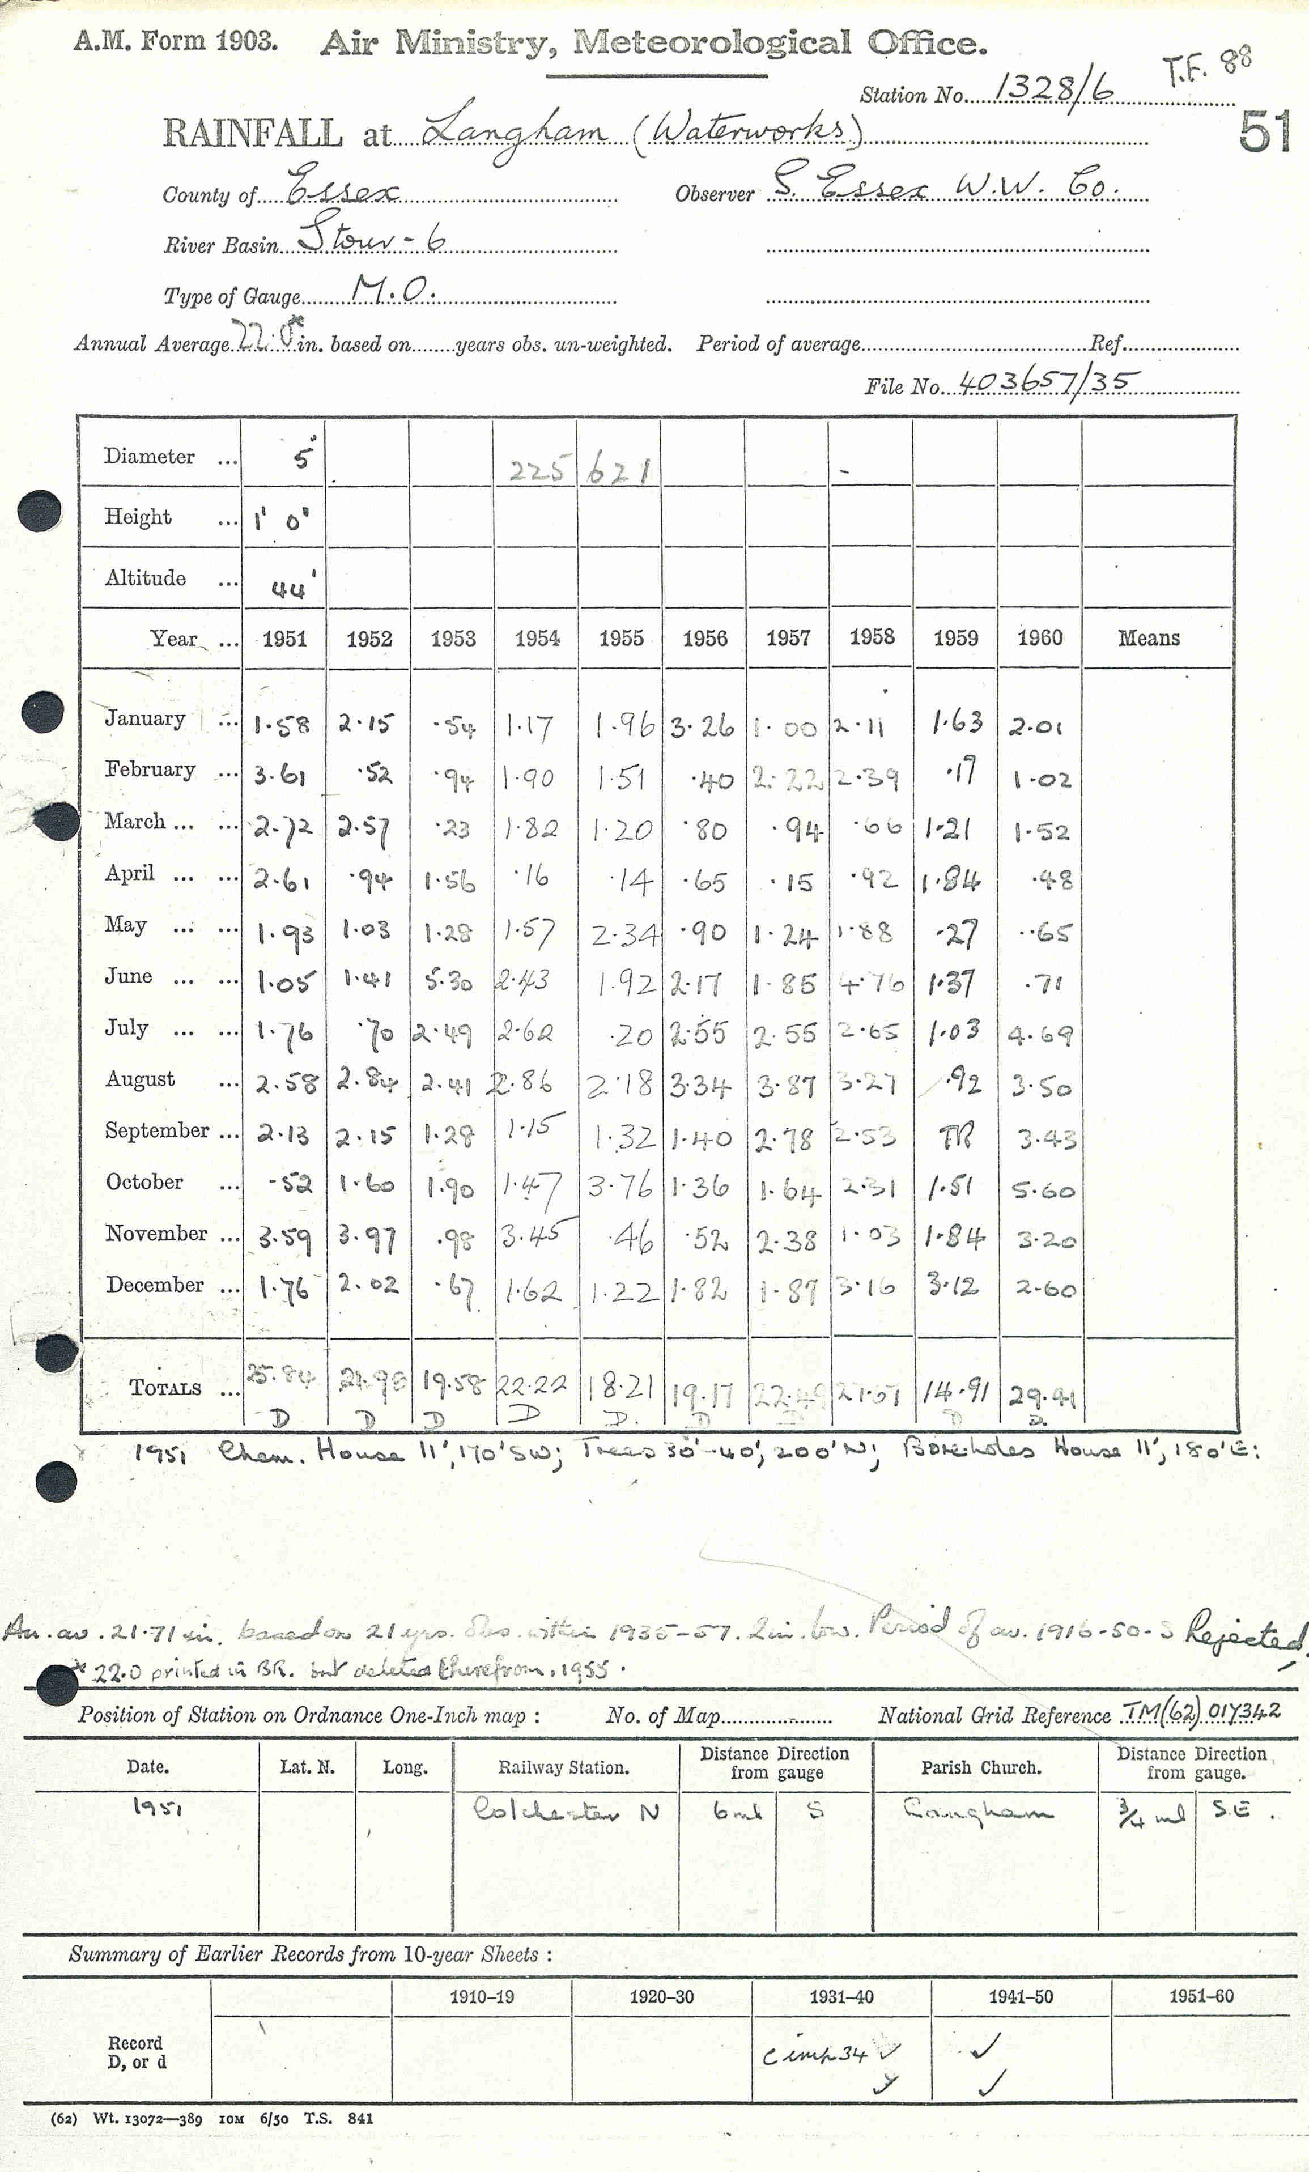 A.M. Form 1903. Air Ministry, Meteorological Office.
T.F. 88
Station No. 1328/6
RAINFALL at Langham (Waterworks)
51
County of Essex Observer S. Essex W.W. Co.
River Basin Stour - 6
Type of Gauge M.O.
Annual Average 22.0* in. based on years obs. un-weighted. Period of average Ref.
File No. 403657/35
Diameter ... 5" 225 621
Height ... 1' 0"
Altitude ... 44'
Year ... 1951 1952 1953 1954 1955 1956 1957 1958 1959 1960 Means
January ... 1.58 2.15 .54 1.17 1.96 3.26 1.00 2.11 1.63 2.01
February ... 3.61 .52 .94 1.90 1.51 .40 2.22 2.39 .17 1.02
March ... ... 2.72 2.57 .23 1.82 1.20 .80 .94 .66 1.21 1.52
April ... ... 2.61 .94 1.56 .16 .14 .65 .15 .92 1.84 .48
May ... ... 1.93 1.03 1.28 1.57 2.34 .90 1.24 1.88 .27 .65
June ... ... 1.05 1.41 5.30 2.43 1.92 2.17 1.85 4.76 1.37 .71
July ... ... 1.76 .70 2.49 2.62 .20 2.55 2.55 2.65 1.03 4.69
August ... 2.58 2.84 2.41 2.86 2.18 3.34 3.87 3.27 .92 3.50
September ... 2.13 2.15 1.28 1.15 1.32 1.40 2.78 2.53 TR 3.43
October ... .52 1.60 1.90 1.47 3.76 1.36 1.64 2.31 1.51 5.60
November ... 3.59 3.97 .98 3.45 .46 .52 2.38 1.03 1.84 3.20
December ... 1.76 2.02 .67 1.62 1.22 1.82 1.87 3.16 3.12 2.60
TOTALS ... 25.84 19.58 22.22 18.21 19.17 22.49 14.91 29.41
D D D D D. D D D.
1951 Chem. House 11', 170' SW; Trees 30'-40', 200' N; Boreholes House 11', 180' E:
An. av. 21.71 in. based on 21 yrs. Obs. within 1935-57. 2 in. low. Period of av. 1916-50. Rejected.
* 22.0 printed in BR. but deleted therefrom, 1955.
Position of Station on Ordnance One-Inch map : No. of Map National Grid Reference TM(62) 017342
Date. Lat. N. Long. Railway Station. Distance Direction from gauge Parish Church. Distance Direction from gauge.
1951 Colchester N 6 ml S Langham 3/4 ml S.E.
Summary of Earlier Records from 10-year Sheets :
1910–19 1920–30 1931–40 1941–50 1951–60
Record
D, or d
c imp 34 ✓ ✓
✓ ✓
(62) Wt. 13072—389 10M 6/50 T.S. 841